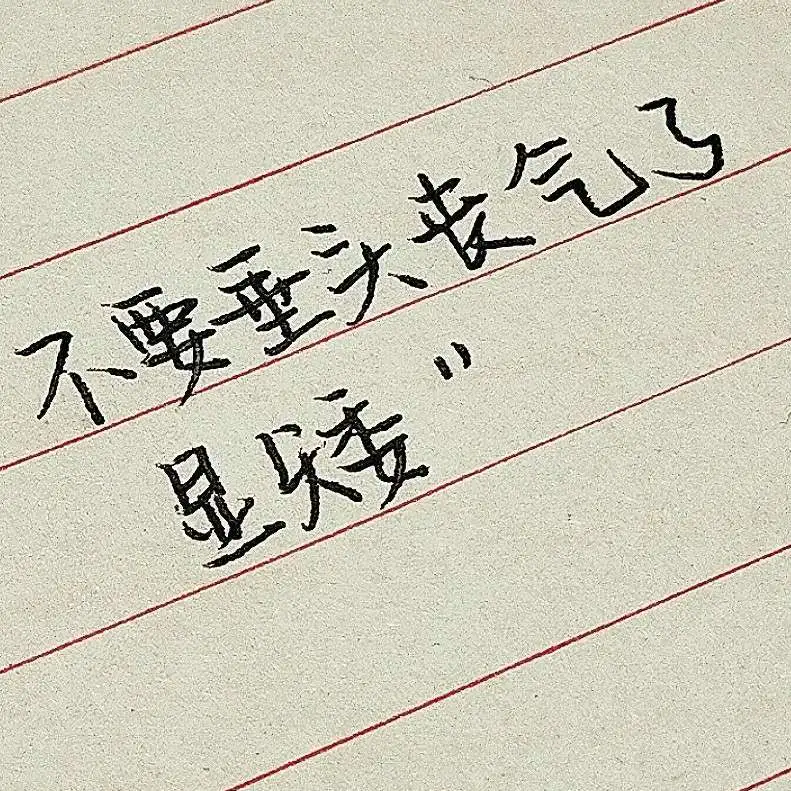 不要垂头丧气了
显矮”